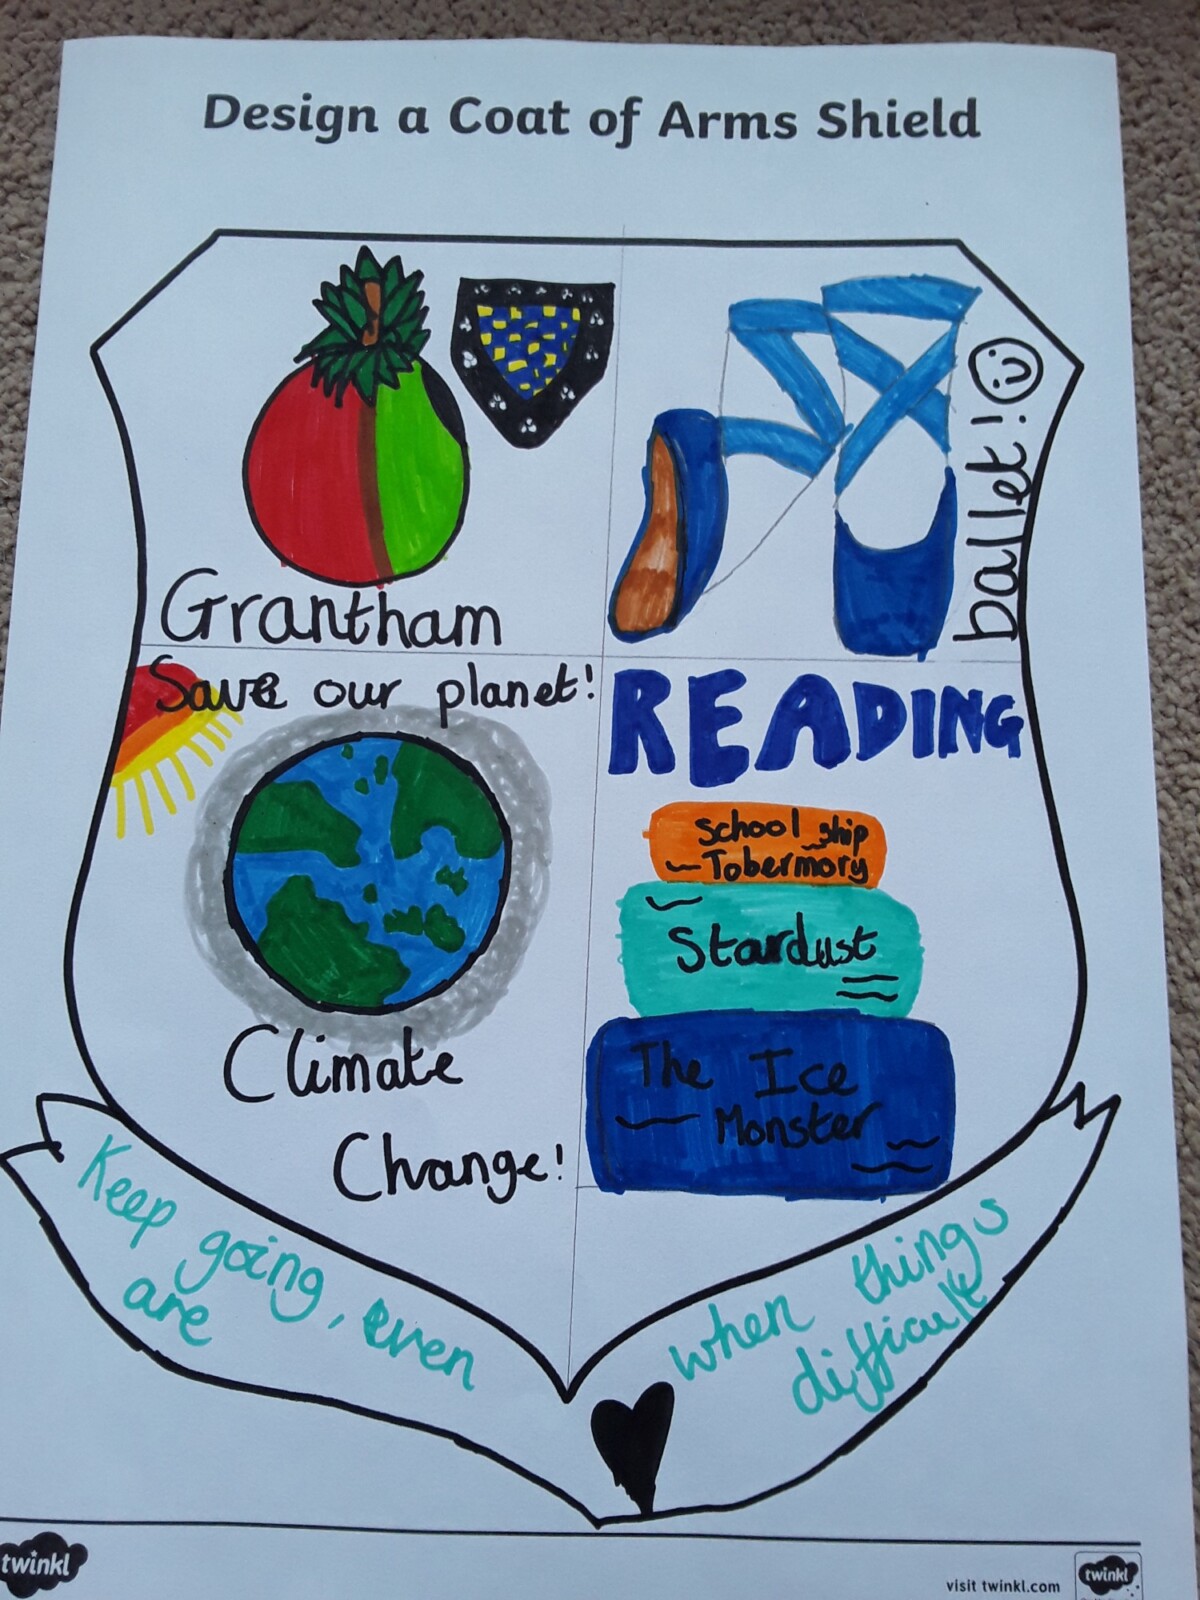 Design a Coat of Arms Shield
Grantham
ballet!
Save our planet!
Climate
Change!
READING
School ship
Tobermory
Stardust
The Ice
Monster
Keep going, even when things
are difficult
twinkl
visit twinkl.com
twinkl